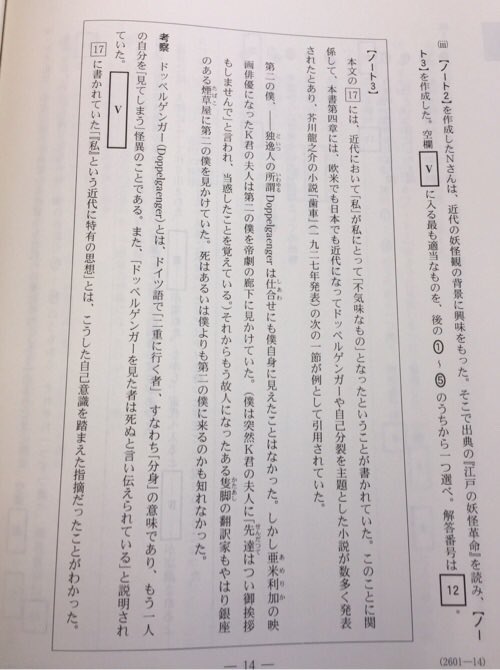 (ⅲ) 【ノート2】を作成したNさんは、近代の妖怪観の背景に興味をもった。そこで出典の『江戸の妖怪革命』を読み、【ノー
ト3】を作成した。空欄 Ⅴ に入る最も適当なものを、後の①~⑤のうちから一つ選べ。解答番号は 12 。
【ノート3】
本文の 17 には、近代において「私」が私にとって「不気味なもの」となったということが書かれていた。このことに関
係して、本書第四章には、欧米でも日本でも近代になってドッペルゲンガーや自己分裂を主題とした小説が数多く発表
されたとあり、芥川龍之介の小説「歯車」(一九二七年発表)の次の一節が例として引用されていた。
第二の僕、――独逸人の所謂 Doppelgaenger は仕合せにも僕自身に見えたことはなかった。しかし亜米利加の映
画俳優になったK君の夫人は第二の僕を帝劇の廊下に見かけていた。(僕は突然K君の夫人に「先達はつい御挨拶
もしませんで」と言われ、当惑したことを覚えている。)それからもう故人になったある隻脚の翻訳家もやはり銀座
のある煙草屋に第二の僕を見かけていた。死はあるいは僕よりも第二の僕に来るのかも知れなかった。
考察 ドッペルゲンガー(Doppelgaenger)とは、ドイツ語で「二重に行く者」、すなわち「分身」の意味であり、もう一人
の自分を「見てしまう」怪異のことである。また、「ドッペルゲンガーを見た者は死ぬと言い伝えられている」と説明され
ていた。
Ⅴ
17 に書かれていた「『私』という近代に特有の思想」とは、こうした自己意識を踏まえた指摘だったことがわかった。
― 14 ―
(2601―14)